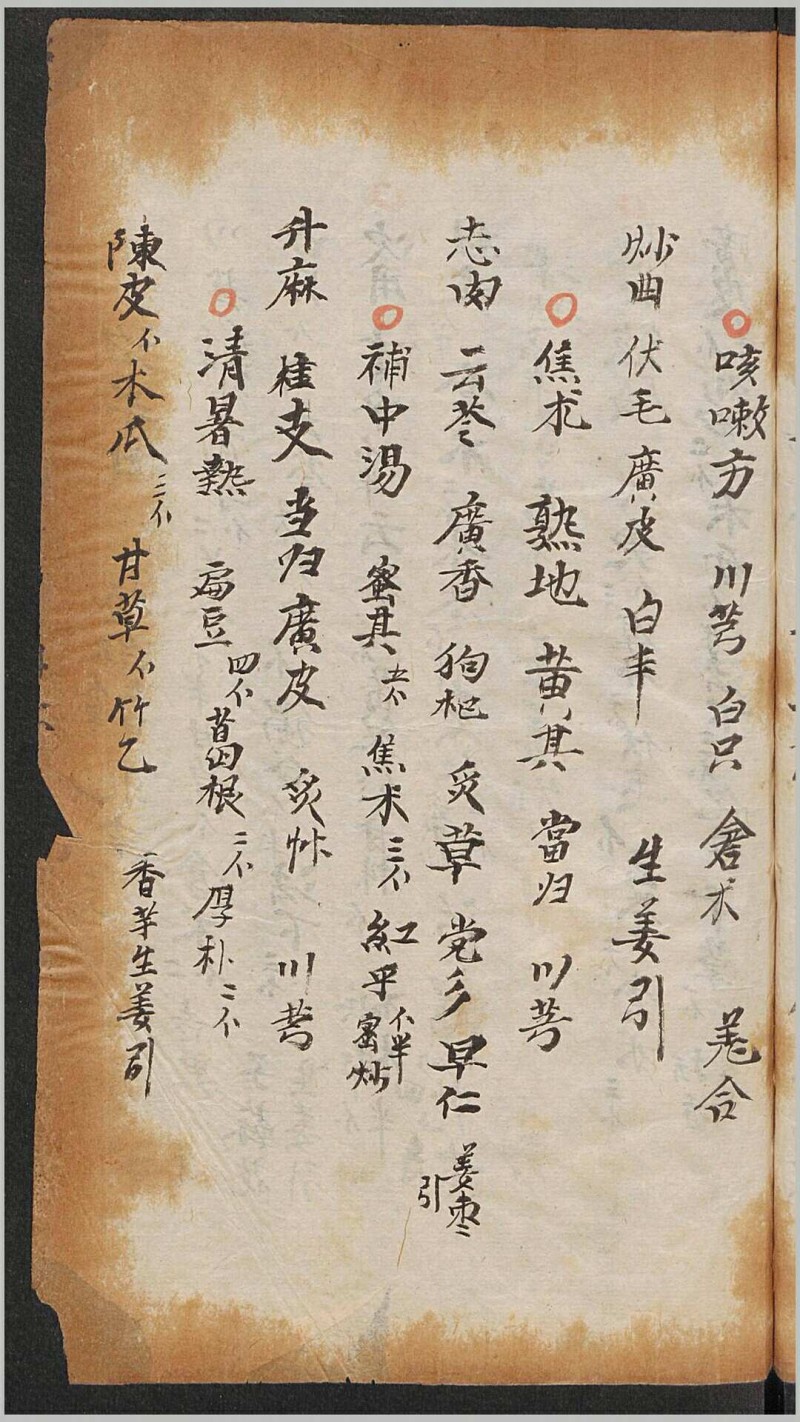 咳嗽方 川芎 白只 倉术 羌合
炒曲 伏毛 廣皮 白半 生姜引
焦术 熟地 黄其 當归 川芎
志肉 云苓 廣香 狗杞 炙草 党参 早仁 姜枣引
補中湯 蜜其 五个 焦术 三个 紅乎 个半 蜜炒
升麻 桂支 当归 廣皮 炙草 川芎
清暑熱 扁豆 四个 葛根 二个 厚朴 二个
陳皮 个 木瓜 三个 甘草 个 竹乙 香茅生姜引